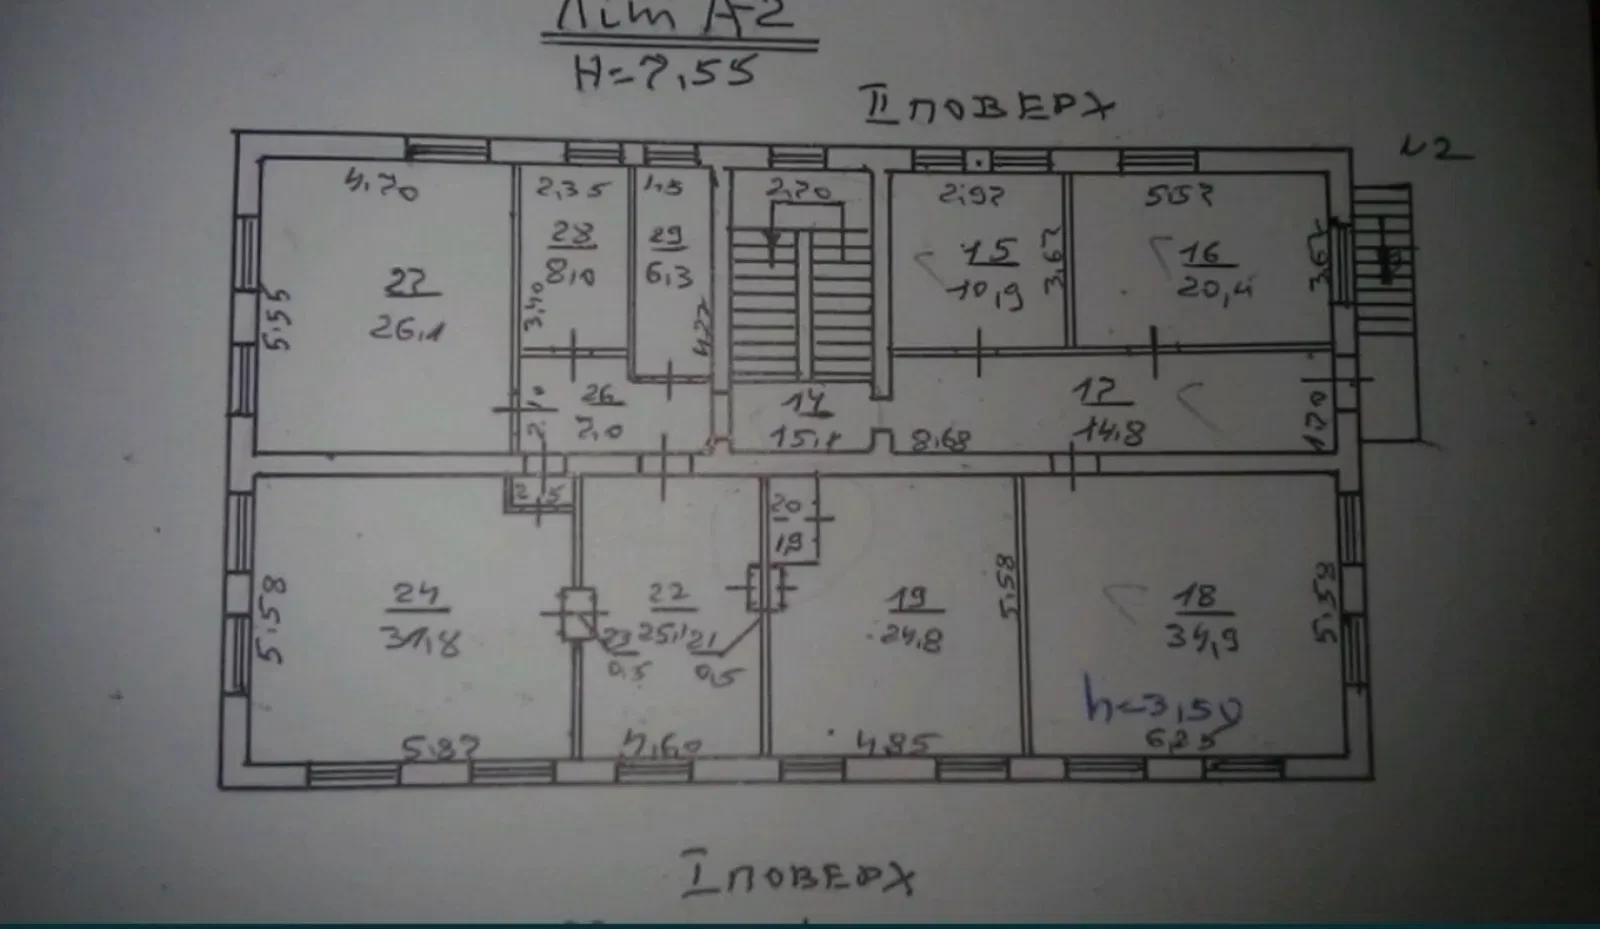 Літ А-2
Н=7,55
II ПОВЕРХ
N2
4,70
2,35
1,5
2,70
2,97
5,57
28
8,0
29
6,3
15
10,9
3,67
16
20,4
3,67
27
26,1
5,55
3,40
4,27
26
7,0
2,10
14
15,1
17
14,8
8,68
1,70
20
1,9
24
31,8
5,58
22
25,1
23
0,5
21
0,5
19
24,8
5,58
18
34,9
5,58
h=3,50
5,87
4,60
4,85
6,25
I ПОВЕРХ